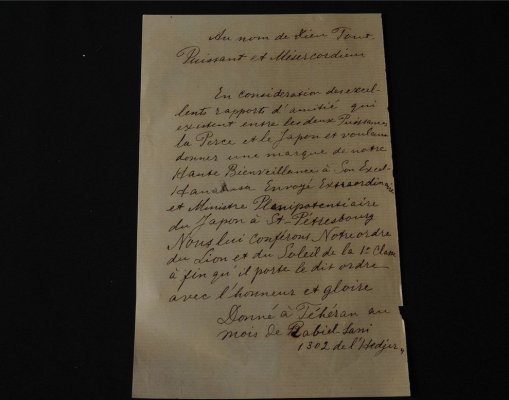 Au nom de Dieu Tout
Puissant et Miséricordieu
En considération des excel-
lents rapports d'amitié qui
existent entre les deux Puissances
la Perce et le Japon et voulant
donner une marque de notre
Haute Bienveillance à Son Excel-
Hanabusa Envoyé Extraordinaire
et Ministre Plénipotentiaire
du Japon à St-Pétresbourg
Nous lui conférons Notre ordre
du Lion et du Soleil de la 1e Classe
à fin qu'il porte le dit ordre
avec l'honneur et gloire
Donné à Téhéran au
mois de Rabiel-Sani
1302 de l'Hedjer